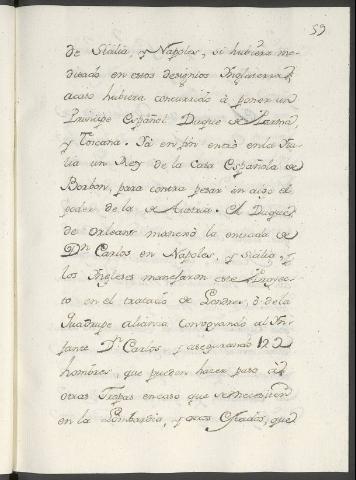 59
de Sicilia, y Napoles, si hubiera me-
ditado en essos designios Inglaterra,
acaso hubiera concurrido à poner un
Principe Español Duque de Parma,
y Toscana. Yà en fin entrò en la Ita-
lia un Rey de la Casa Española de
Borbon, para contra pesar en algo el
poder de la de Austria. El Duque
de Orleans manejò la entrada de
Dn. Carlos en Napoles, y Sicilia, y
los Ingleses manejaron este Proyec-
to en el tratado de Londres, ò de la
Quadruple alianza Convoyando al In-
fante Dn. Carlos, y asegurando
hombres, que pueden hacer paso à
otras Tropas en caso que se necesiten
en la Lombardia, y otros Estados, que